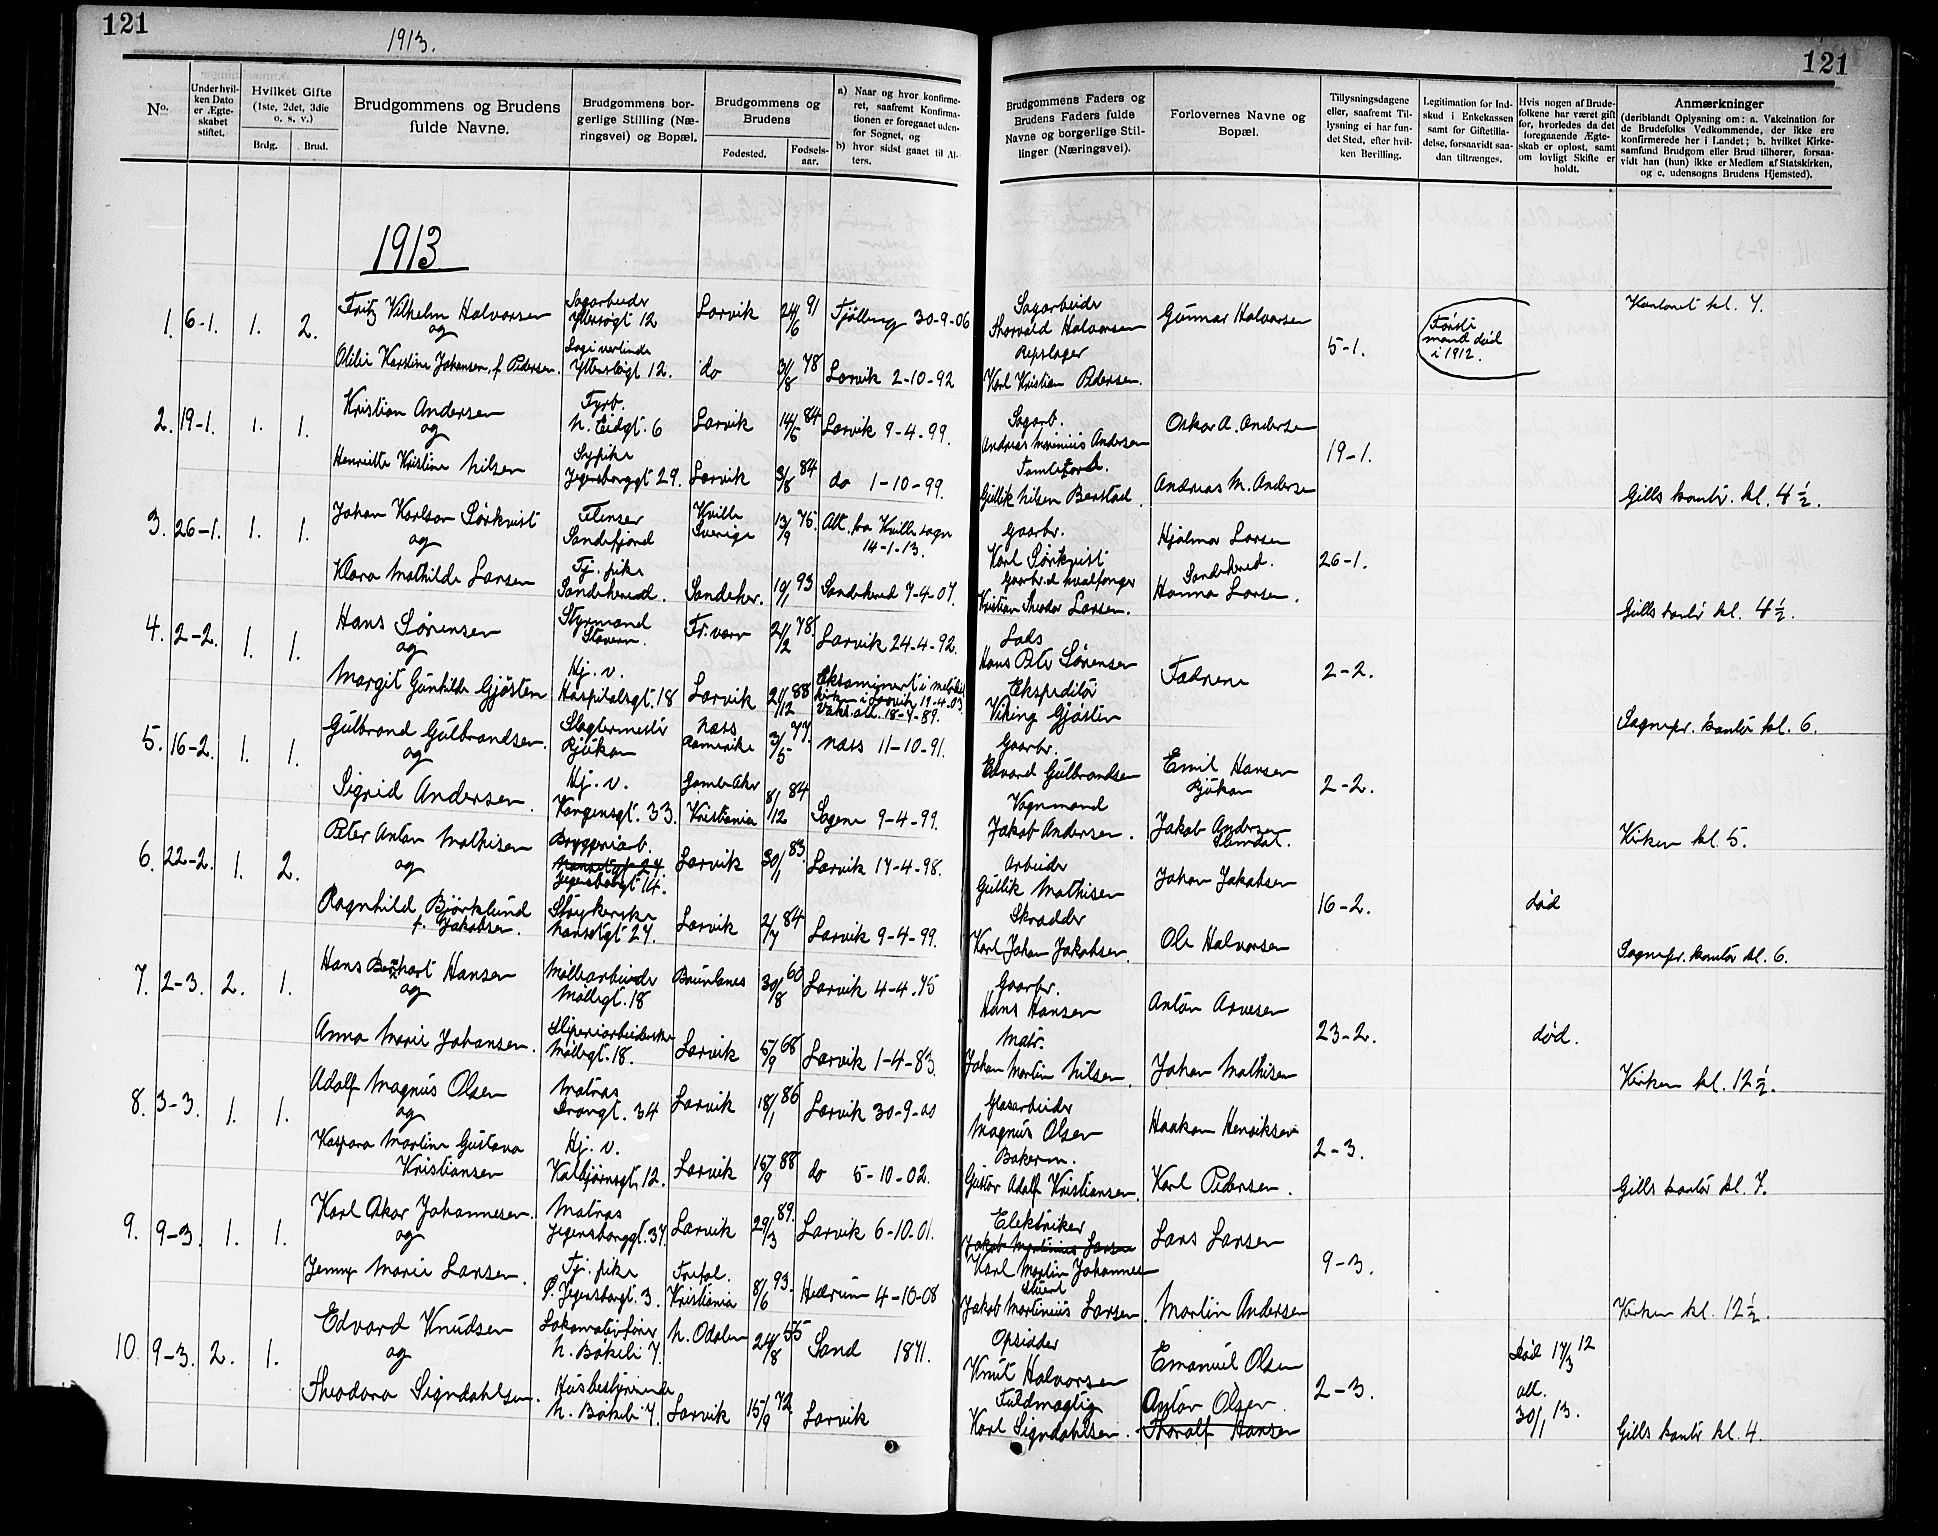 121
1913.
121
No.
Under hvil-
ken Dato
er Ægte-
skabet
stiftet.
Hvilket Gifte
(1ste, 2det, 3die
o. s. v.)
Brdg.
Brud.
Brudgommens og Brudens
fulde Navne.
Brudgommens bor-
gerlige Stilling (Næ-
ringsvei) og Bopæl.
Brudgommens og
Brudens
Fødested.
Fødsels-
aar.
a) Naar og hvor konfirme-
ret, saafremt Konfirma-
tionen er foregaaet uden-
for Sognet, og
b) hvor sidst gaaet til Al-
ters.
Brudgommens Faders og
Brudens Faders fulde
Navne og borgerlige Stil-
linger (Næringsvei).
Forlovernes Navne og
Bopæl.
Tillysningsdagene
eller, saafremt Til-
lysning ei har fun-
det Sted, efter hvil-
ken Bevilling.
Legitimation for Ind-
skud i Enkekassen
samt for Giftetilla-
delse, forsaavidt saa-
dan tiltrænges.
Hvis nogen af Brude-
folkene har været gift
før, hvorledes da det
foregaaende Ægte-
skab er opløst, samt
om lovligt Skifte er
holdt.
Anmærkninger
(deriblandt Oplysning om: a. Vakcination for
de Brudefolks Vedkommende, der ikke ere
konfirmerede her i Landet; b. hvilket Kirke-
samfund Brudgom eller Brud tilhører, forsaa-
vidt han (hun) ikke er Medlem af Statskirken,
og c. udensogns Brudens Hjemsted).
1913
1. 6-1. 1. 2. Fritz Vilhelm Halvorsen
og
Sagarbeider
Yttersøgt 12
Larvik 24/6 91 Fjølling 30-9-06
Sagarbeider
Thorvald Halvorsen
Gunnar Halvorsen
5-1.
Første
mand død
i 1912.
Kontoret kl. 7.
Olilie Karoline Johansen, f. Pedersen.
Yttersøgt 12.
do 31/8 78 Larvik 2-10-92
Repslager
Karl Kristian Pedersen.
2. 19-1. 1. 1. Kristian Andersen
og
Fyrb.
N. Eidgt. 6
Larvik 14/5 84 Larvik 9-4-99.
Sagarb.
Andreas Marinius Andersen
Oskar A. Andersen
19-1.
Henriette Kristine Nilsen
Sypike
Jegersborggt 29.
Larvik 3/8 84 do 1-10-99.
Gullik Nilsen Barstad.
Andreas M. Andersen
Gills kontor. kl. 4 1/2.
3. 26-1. 1. 1. Johan Karlson Sørkvist
og
Flenser
Sandefjord
Kville
Sverige
13/9 75. Att. fra Kville sogn
14-1-13.
Gaarbr.
Karl Sørkvist
Hjalmar Larsen
Sandeherred.
26-1.
Klara Mathilde Larsen
Tj. pike
Sandeherred.
Sandeher. 19/1 93 Sandeherred 7-4-07.
Gaarbr. & hvalfanger
Kristian Theodor Larsen.
Hanna Larsen.
Gills kontor kl. 4 1/2.
4. 2-2. 1. 1. Hans Sørensen
og
Styrmand
Stavern.
Fr.værn 21/2 78. Larvik 24-4-92.
Lods
Hans Peter Sørensen
Fædrene
2-2.
Margit Gunhilde Gjøsten
Hj. v.
Hospitalsgt. 18
Larvik 21/12 88
Ekspeditør
Viking Gjøsten
Sognepr. kontor kl. 6.
5. 16-2. 1. 1. Gulbrand Gulbrandsen.
og
Slagtermester
Rjukan
Næss
Romerike
3/5 77. Næss 11-10-91.
Gaarbr.
Edvard Gulbrandsen
Emil Hansen
Rjukan
2-2.
Sigrid Andersen.
Hj. v.
Kongensgt. 33.
Gamle Aker
Kristiania
8/12 84 Sagene 9-4-99.
Vognmand
Jakob Andersen.
Jakob Andersen
Slemdal.
Kirken kl. 5.
6. 22-2. 1. 2. Peter Anton Mathisen
og
Bryggeriarb.
Nansetgt 27.
Jegersborgt 14.
Larvik 30/1 83. Larvik 17-4-98.
Arbeider
Gullik Mathisen
Johan Jakobsen
16-2.
død
Ragnhild Bjørklund
f. Jakobsen.
Strykerske
Nansetgt 27.
Larvik 2/7 84 Larvik 9-4-99.
Skrædder
Karl Johan Jakobsen.
Ole Halvorsen
Sognepr. kontor kl. 6.
7. 2-3. 2. 1. Hans Bernhart Hansen
og
Møllearbeider
Møllegt. 18
Brunlanes 30/8 60 Larvik 4-4-75
Gaarbr.
Hans Hansen
Anton Arvesen
23-2.
død.
Anna Marie Johansen.
Sliperiarbeiderske
Møllegt. 18.
Larvik 15/9 68 Larvik 1-4-83.
Matr.
Johan Martin Nilsen.
Johan Mathisen
Kirken kl. 12 1/2.
8. 3-3. 1. 1. Adolf Magnus Olsen
og
Matros
Larvik 18/1 86 Larvik 30-9-00
Glasarbeider
Magnus Olsen
Haakon Henriksen
2-3.
Kaspara Martine Gustava
Kristiansen
Hj. v.
Kalbjørnsgt. 12.
Larvik 15/9 88 do 5-10-02.
Bakerm.
Gustav Adolf Kristiansen.
Karl Pedersen.
Gills kontor kl. 7.
9. 9-3. 1. 1. Karl Oskar Johannesen.
og
Matros
Jegersborggt. 37.
Larvik 29/3 89. Larvik 6-10-01.
Elektriker
Jakob Martinius Larsen
Karl Martin Johannesen
Lars Larsen
9-3.
Jenny Marie Larsen.
Tj. pike
P. Jegersborgt. 3.
Trefol.
Kristiania
8/6 93. Hedrum 4-10-08
Stuert
Jakob Martinius Larsen.
Martin Andersen
Kirken kl. 12 1/2.
10. 9-3. 2. 1. Edvard Knudsen
og
Lokomotivfører
N. Bøkeli 7.
N. Odalen 24/8 55 Sand 1871.
Opsidder
Knut Halvorsen
Emanuel Olsen
2-3.
død 17/3 12
att.
30/1 13.
Theodora Signdahlsen.
Husbestyrerinde
N. Bøkeli 7.
Larvik 15/9 72. Larvik
Fuldmægtig
Karl Signdahlsen.
Anton Olsen.
Thoralf Hansen
Gills kontor kl. 4.